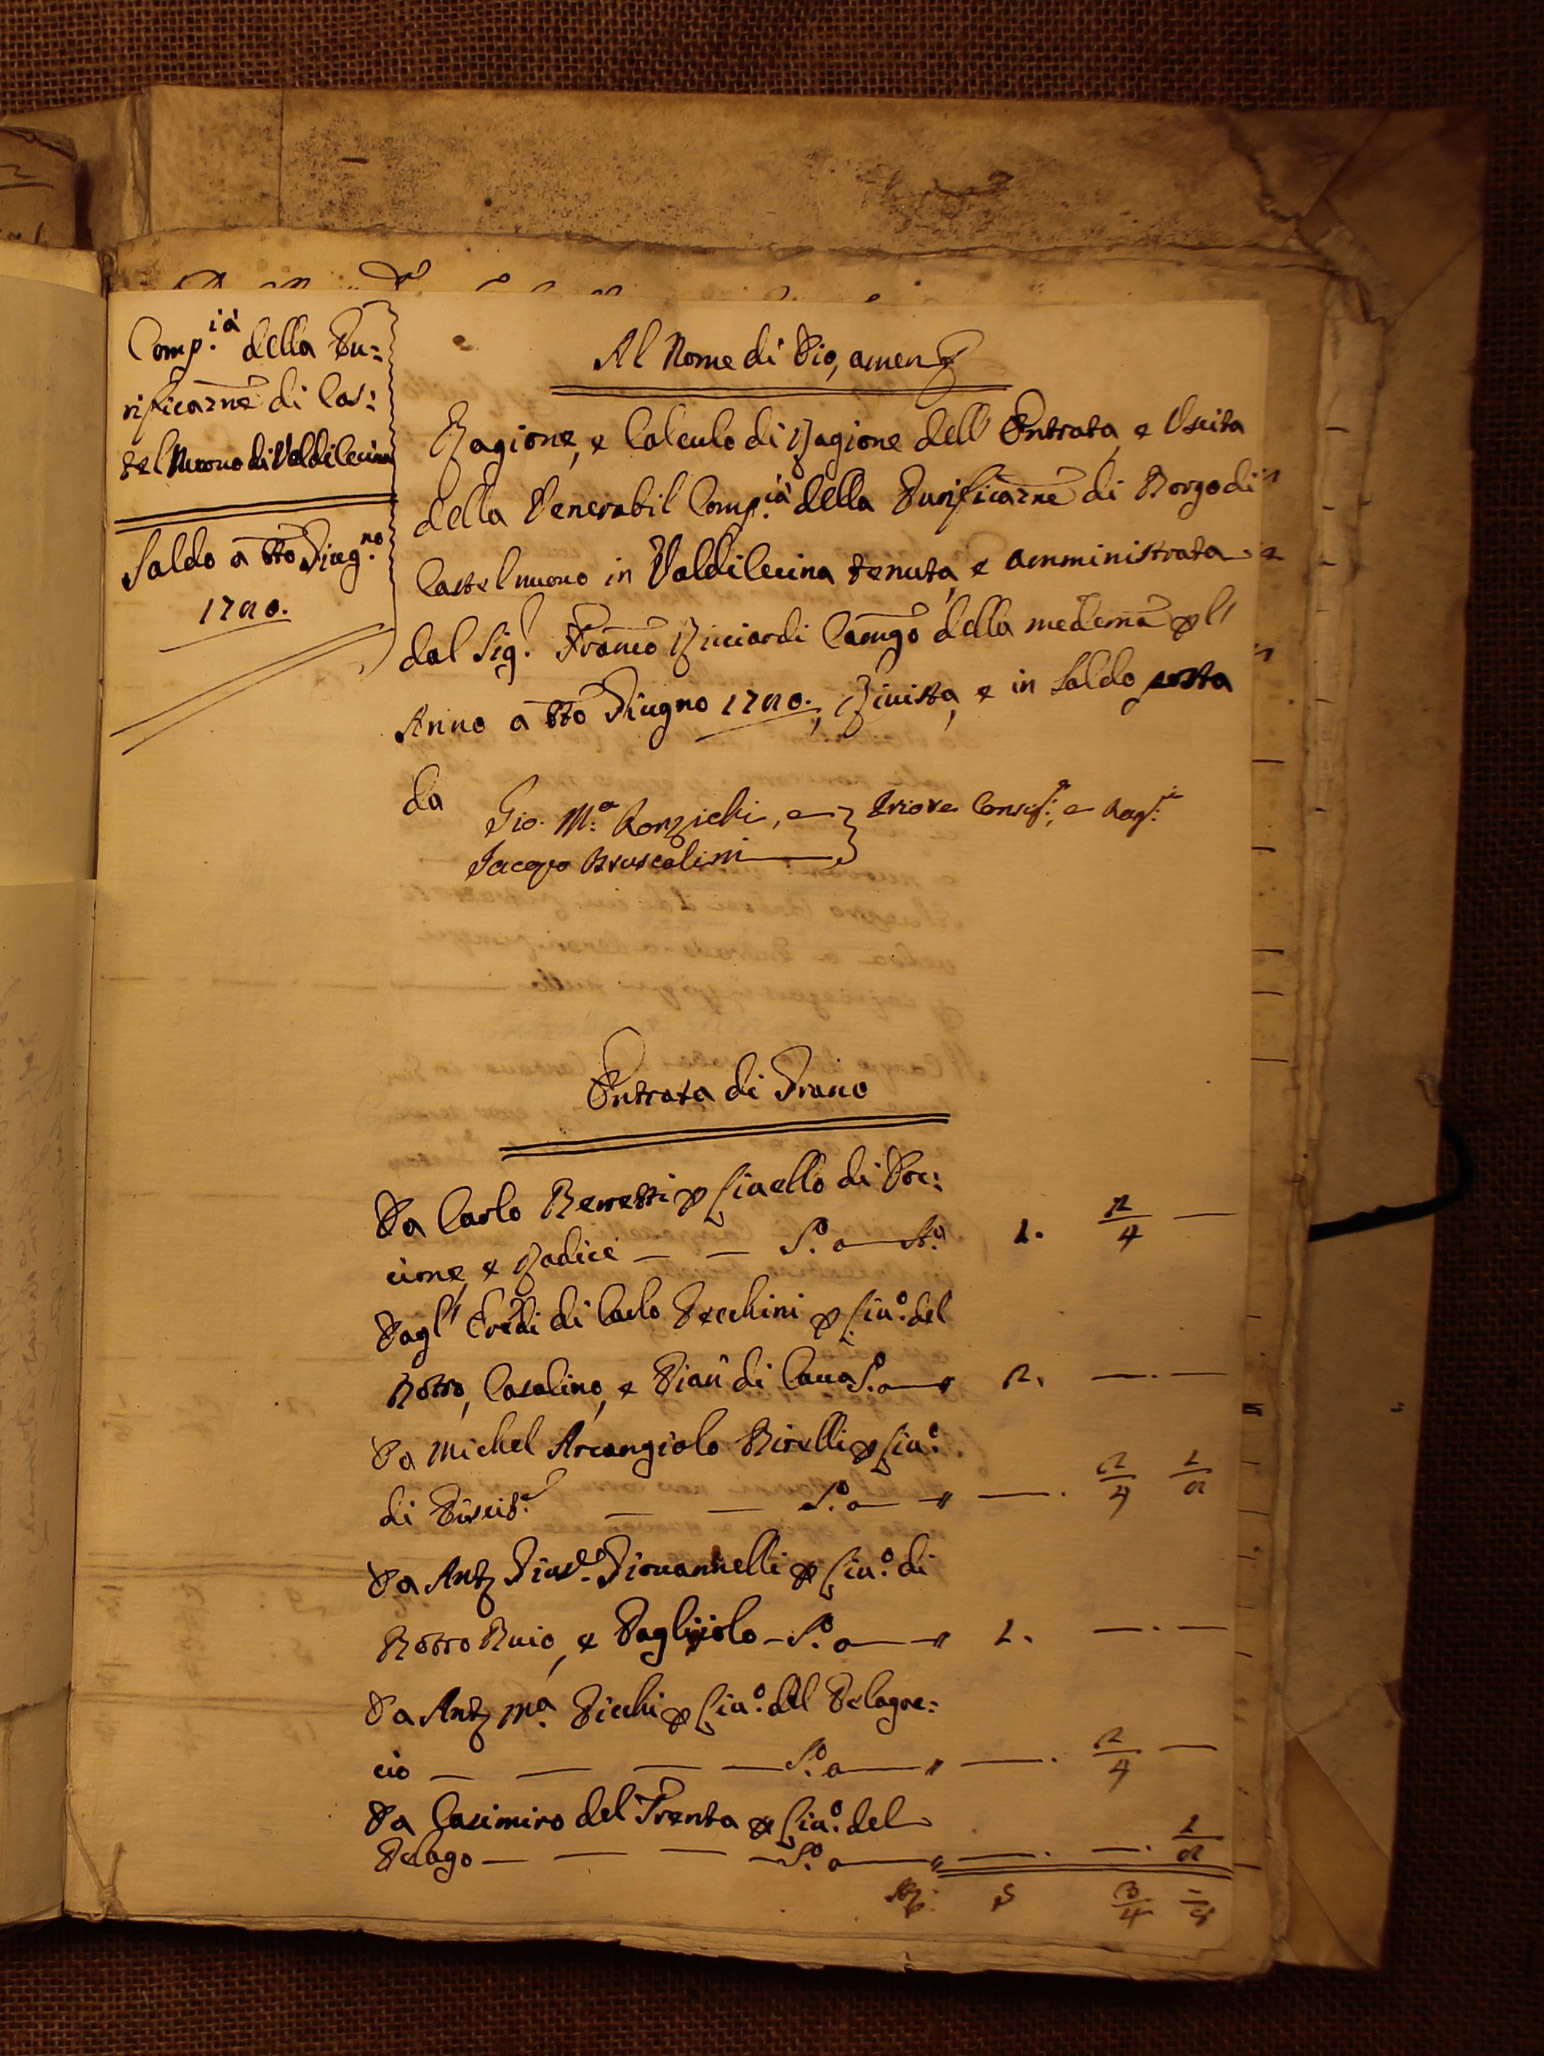 Comp.ià della Pu:
rificaz̄ne di Cas:
tel Nuovo di Valdilecina
Saldo a tt̄o Giug.no
1720.
Al Nome di Dio, amen
Ragione, e Calculo di Ragione dell' Entrata, e Uscita
della Venerabil Comp.ià della Purificaz̄ne di Borgo di
Castelnuovo in Valdilecina tenuta, e amministrata
dal Sig.r Franc̄o Ricciardi Camḡo della medem̄a p l'
Anno a tt̄o Giugno 1720., Rivista, e in Saldo posta
da
Gio. M.a Ronzichi, e
Jacopo Bruscolini
Priore Consig.e, e Rag.re
Entrata di Grano
Da Carlo Berretti p Livello di Por:
cione, e Radice S.o a St.a 1. 2/4 —
Dagl' Eredi di Carlo Secchini p Liv.o del
Botro, Casalino, e Pian di Cava S.o a — " 2. — . —
Da Michel Arcangiolo Birelli p Liv.o
di S.o a — " — . 2/4 1/2
Da Ant. Giu.e Giovannelli p Liv.o di
Botro Buio, e Pagliiolo — S.o a — " 1. — . —
Da Ant. M.a Picchi p Liv.o del Pelagac:
cio — — — — S.o a — " — . 2/4 —
Da Casimiro del Trenta p Liv.o del
Pelago — — — — S.o a — " — . — . 1/2
5 3/4